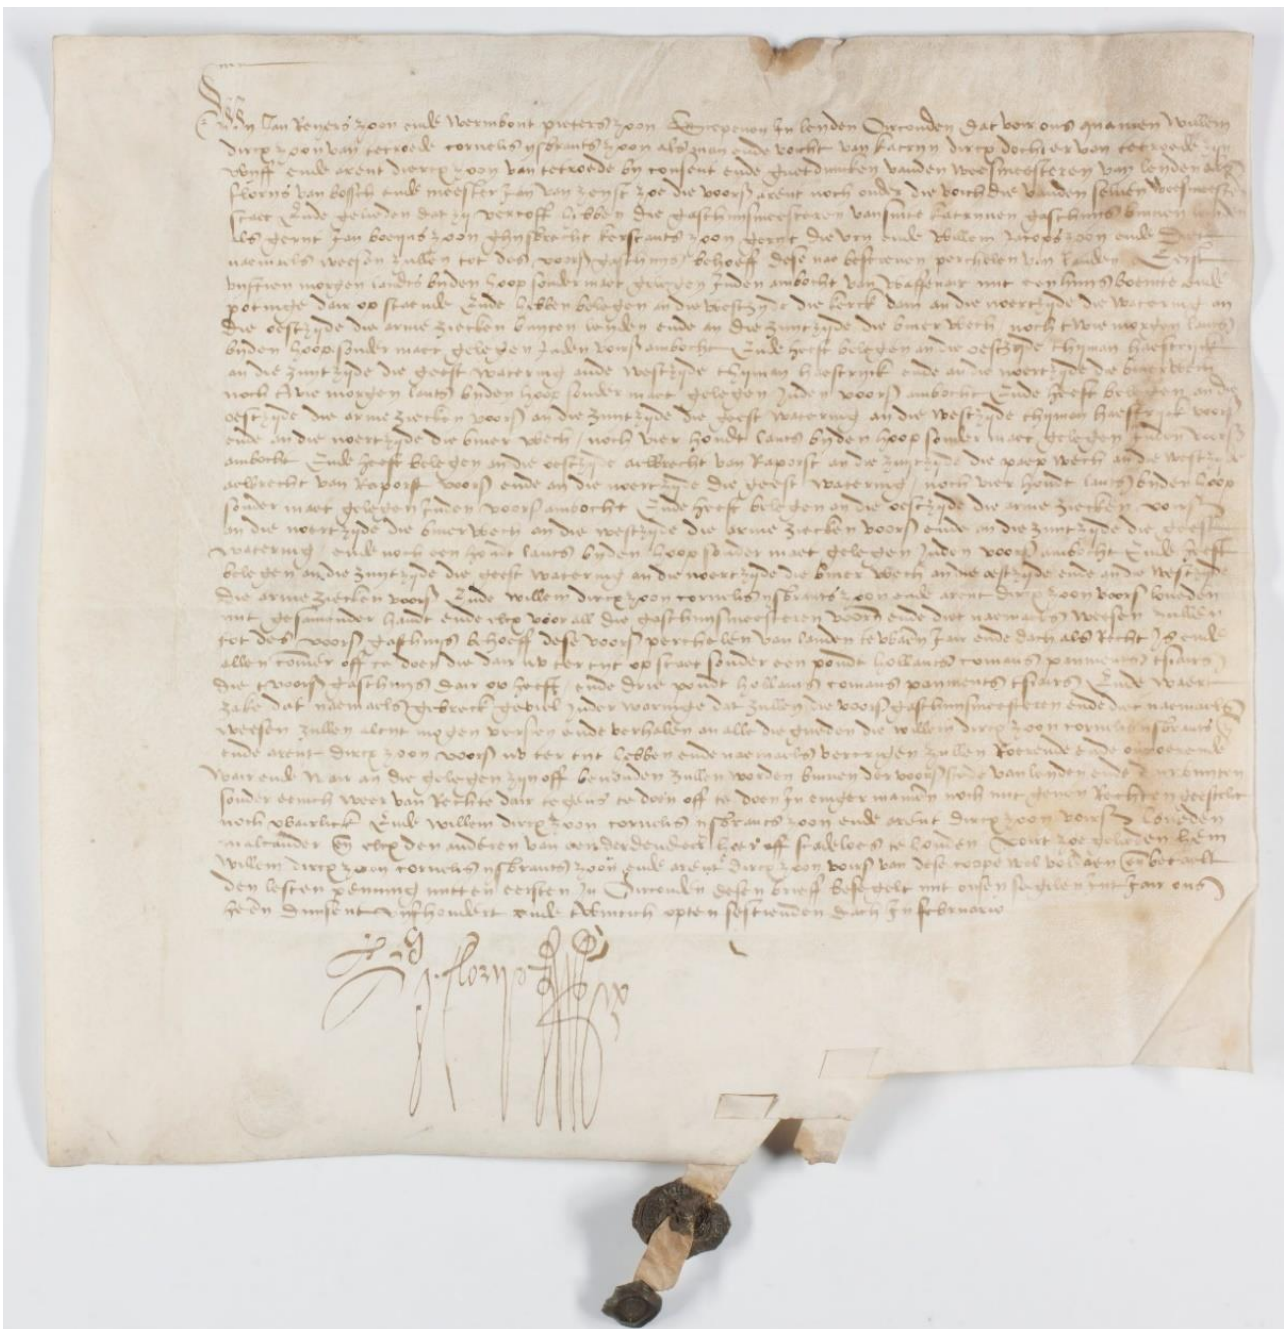 Jan Reyers zoon ende wermbout pieters zoon Scepenen In leyden Oirconden dat voir ons quamen willem
dircx zoon van tetroede cornelis ysbrants zoon als man ende voocht van katryn dircx dochter van tetroede zyn
wyff ende arent dircx zoon van tetroede by consent ende goetduncken vanden weesmeesteren van leyden als
floris van bossch ende meester Jan van zeyst zoe die voirs arent noch onder die voichdie vanden selven weesmeesters
staet Ende gelieden dat zy vercoft hebben die gasthuusmeesteren van sinte katrynen gasthuys binnen leyden
als gerryt Jan boeyns zoon ghysbrecht kerstants zoon gerryt die vry ende willem Jacops zoon ende diet
naemaels weesen zullen tot des voirs gasthuys behoeff dese nae bescreven perchelen van landen Eerst
morgen landts byden hoop sonder maet gelegen Inden ambocht van wassenair mit een huys boemte ende
potinge dair op staende Ende hebben belegen an die westzyde die kerck dam an die noertzyde die watering an
die oestzyde die arme ziecken buyten leyden ende an die zuytzyde die hmer wech noch twie morgen lants
byden hoop sonder maet gelegen Inden voirs ambocht Ende heeft belegen an die oestzyde thyman haestryck
an die zuytzyde die geest watering ande westzyde thyman haestryck ende an die noertzyde die wech
noch twie morgen lants byden hoop sonder maet gelegen Inden voirs ambocht Ende heeft belegen an de
oestzyde die arme ziecken voirs an die zuytzyde die geest watering an die westzyde thyman haestryck voirs
ende an die noertzyde die wech noch vier hondt lants byden hoop sonder maet gelegen Inden voirs
ambocht Ende heeft belegen an die oestzyde aelbrecht van Raporst an die zuytzyde die paep wech an die westzyde
aelbrecht van Raporst voirs ende an die noertzyde die geest watering noch vier hondt lants byden hoop
sonder maet gelegen Inden voirs ambocht Ende heeft belegen an die oestzyde die arme ziecken voirs
an die noertzyde die wech an die westzyde die arme ziecken voirs ende an die zuytzyde die geest
watering ende noch een hondt lants byden hoop sonder maet gelegen Inden voirs ambocht Ende heeft
belegen an die zuytzyde die geest watering an die noertzyde die wech an die oestzyde ende an die westzyde
die arme ziecken voirs Ende willem dircx zoon cornelis ysbrants zoon ende arent dircx zoon voirs loveden
mit gesamender handt ende elcx voor all die gasthuusmeesteren voirs ende diet naemaels weesen zullen
tot des voirs gasthuys behoeff dese voirs perchelen van landen te Jair ende dach als Recht Is ende
allen commer off te doen die dair nv ter tyt op staet sonder een pondt hollants comans payments tsiairs
die tvoirs gasthuys dair op heeft ende drie pondt hollants comans payments tsiairs Ende waert
zake dat naemaels gebreck geviel Inder waringe dat zullen die voirs gasthuusmeesteren ende diet naemaels
weesen zullen altyt mogen ende verhalen an alle die gueden die willem dircx zoon cornelis ysbrants zoon
ende arent dircx zoon voirs nv ter tyt hebben ende naemaels vercrigen zullen Roerende ende onroerende
wair ende wair an die gelegen zyn off bevonden zullen worden binnen der voirs stede van leyden ende buyten
sonder eenich weer van Rechte dair tegens te doen off te doen In eniger manieren noch mit genen Rechten geestelic
noch wairlick Ende willem dircx zoon cornelis ysbrants zoon ende arent dircx zoon voirs loveden
malcander elcx den anderen van off scadeloes te houden Voirt zoe gelieden hem
willem dircx zoon cornelis ysbrants zoon ende arent dircx zoon voirs van dese coope wel voldaen betaelt
den lesten penning mitten eersten In Oirconden desen brieff besegelt mit onsen segelen Int Jair ons
heren duusent vyfhondert ende twintich opten sestienden dach In februario
florys